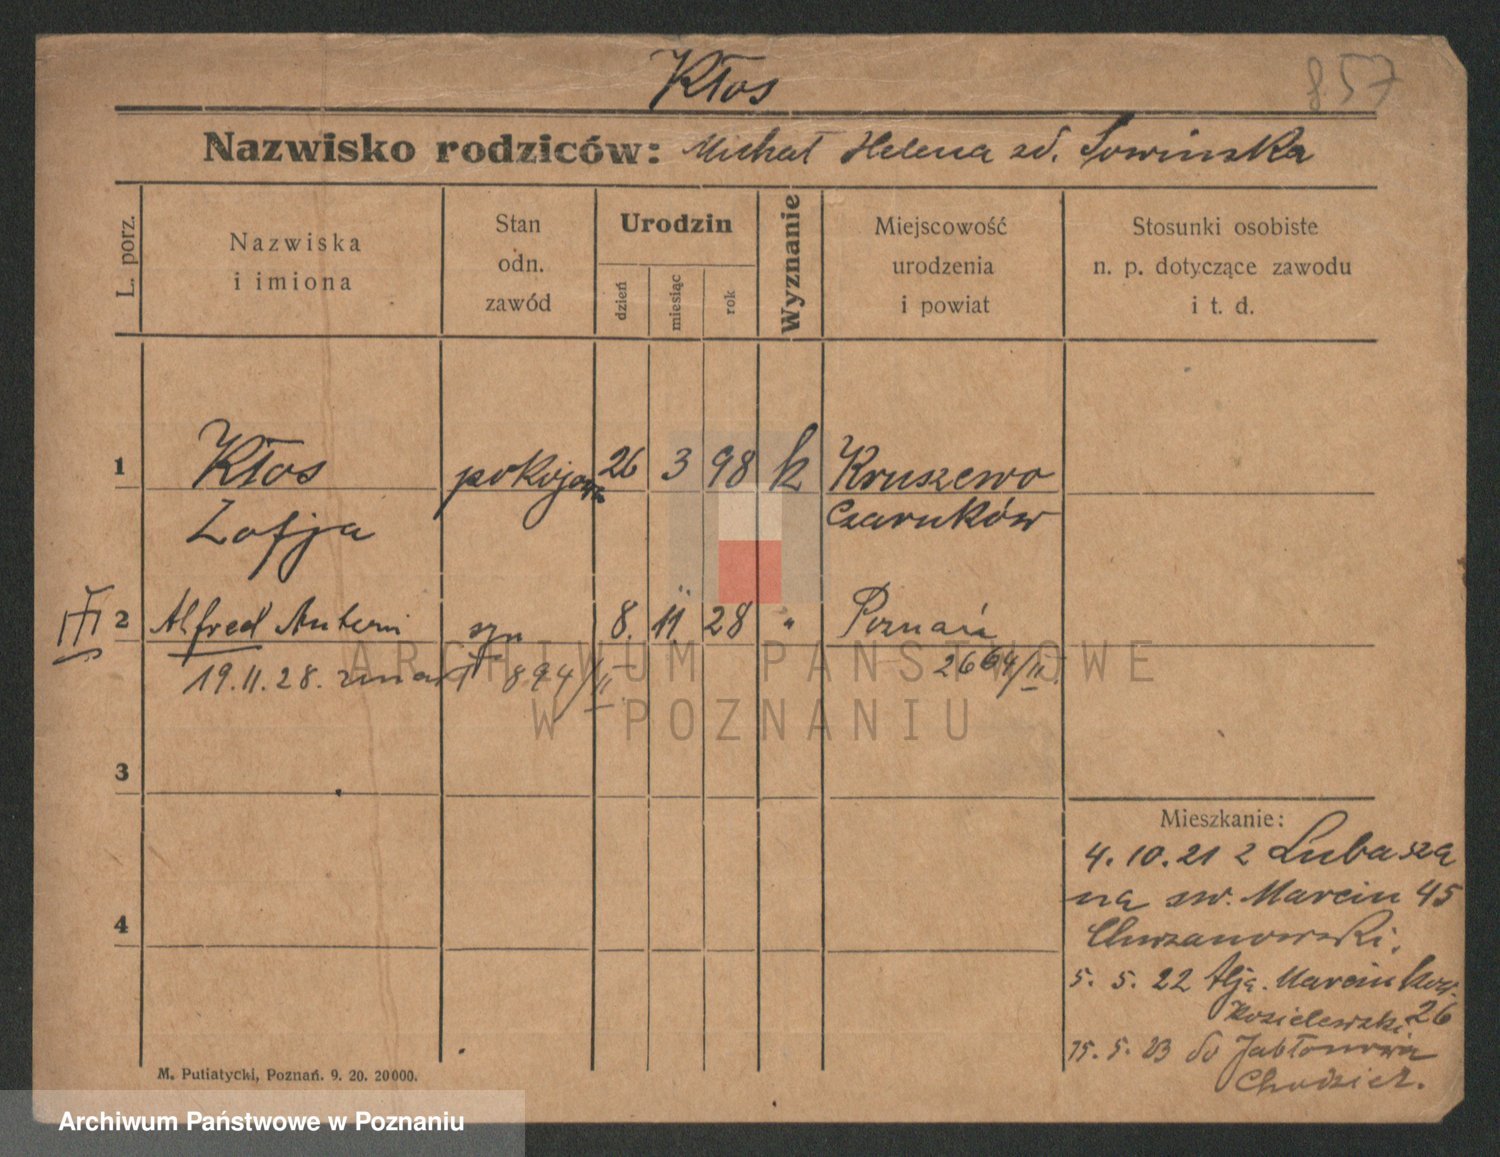 Kłos
857
Nazwisko rodziców: Michał Helena zd. Sowinska
L. porz.
Nazwiska
i imiona
Stan
odn.
zawód
Urodzin
dzień
miesiąc
rok
Wyznanie
Miejscowość
urodzenia
i powiat
Stosunki osobiste
n. p. dotyczące zawodu
i t. d.
1 Kłos pokojowa 26 3 98 k Kruszewo
Zofja Czarnków
III 2 Alfred Antoni syn 8. 11 28 " Poznań
19.11.28. zmarł 894/II 2664/II.
3
4
Mieszkanie:
4. 10. 21 z Lubasza
na sw. Marcin 45
Chrzanowski.
5. 5. 22 Alja. Marcinkow.
Kosielewski 26
15. 5. 23 do Jabłonowa
Chodzież.
M. Putiatycki, Poznań. 9. 20. 20000.
ARCHIWUM PAŃSTWOWE
W POZNANIU
Archiwum Państwowe w Poznaniu